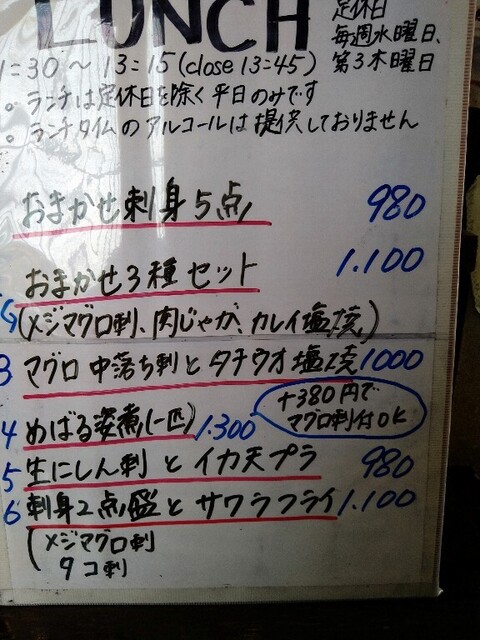 LUNCH
定休日
毎週水曜日、
第3木曜日
1:30～13:15(close 13:45)
。ランチは定休日を除く平日のみです
。ランチタイムのアルコールは提供しておりません
おまかせ刺身5点 980
おまかせ3種セット 1.100
(メジマグロ刺、肉じゃが、カレイ塩焼)
3 マグロ中落ち刺とタチウオ塩焼 1000
4 めばる姿煮(一匹) 1.300
+380円で
マグロ刺付OK
5 生にしん刺とイカ天プラ 980
6 刺身2点盛とサワラフライ 1.100
(メジマグロ刺
タコ刺